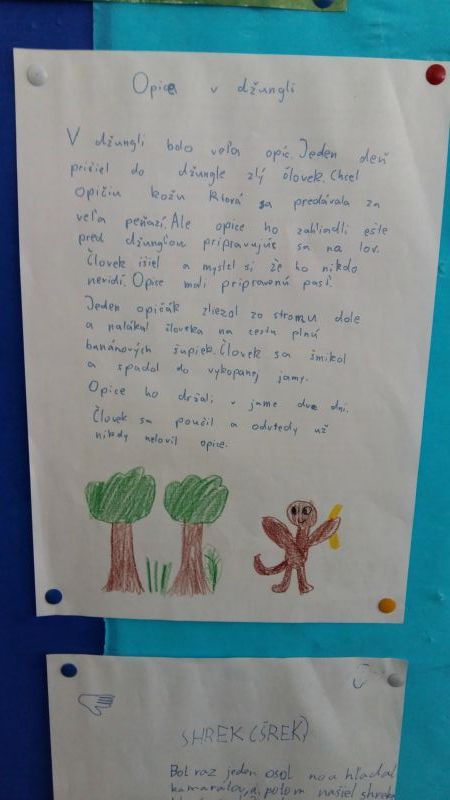 Opice v džungli
V džungli bolo veľa opíc. Jeden deň
prišiel do džungle zlý človek. Chcel
opičiu kožu ktorá sa predávala za
veľa peňazí. Ale opice ho zahliadli ešte
pred džungľou pripravujúc sa na lov.
Človek išiel a myslel si že ho nikdo
nevidí. Opice mali pripravenú pasť.
Jeden opičák zliezol zo stromu dole
a nalákal človeka na cestu plnú
banánových šupiek. Človek sa šmikol
a spadol do vykopanej jamy.
Opice ho držali v jame dva dni.
Človek sa poučil a odvtedy už
nikdy nelovil opice.
SHREK (ŠREK)
Bol raz jeden osol no a hľadal
kamaráta, a potom našiel shreka